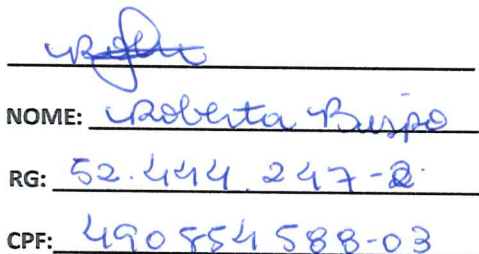 NOME: Roberta Bispo
RG: 52.444.247-2
CPF: 490554588-03